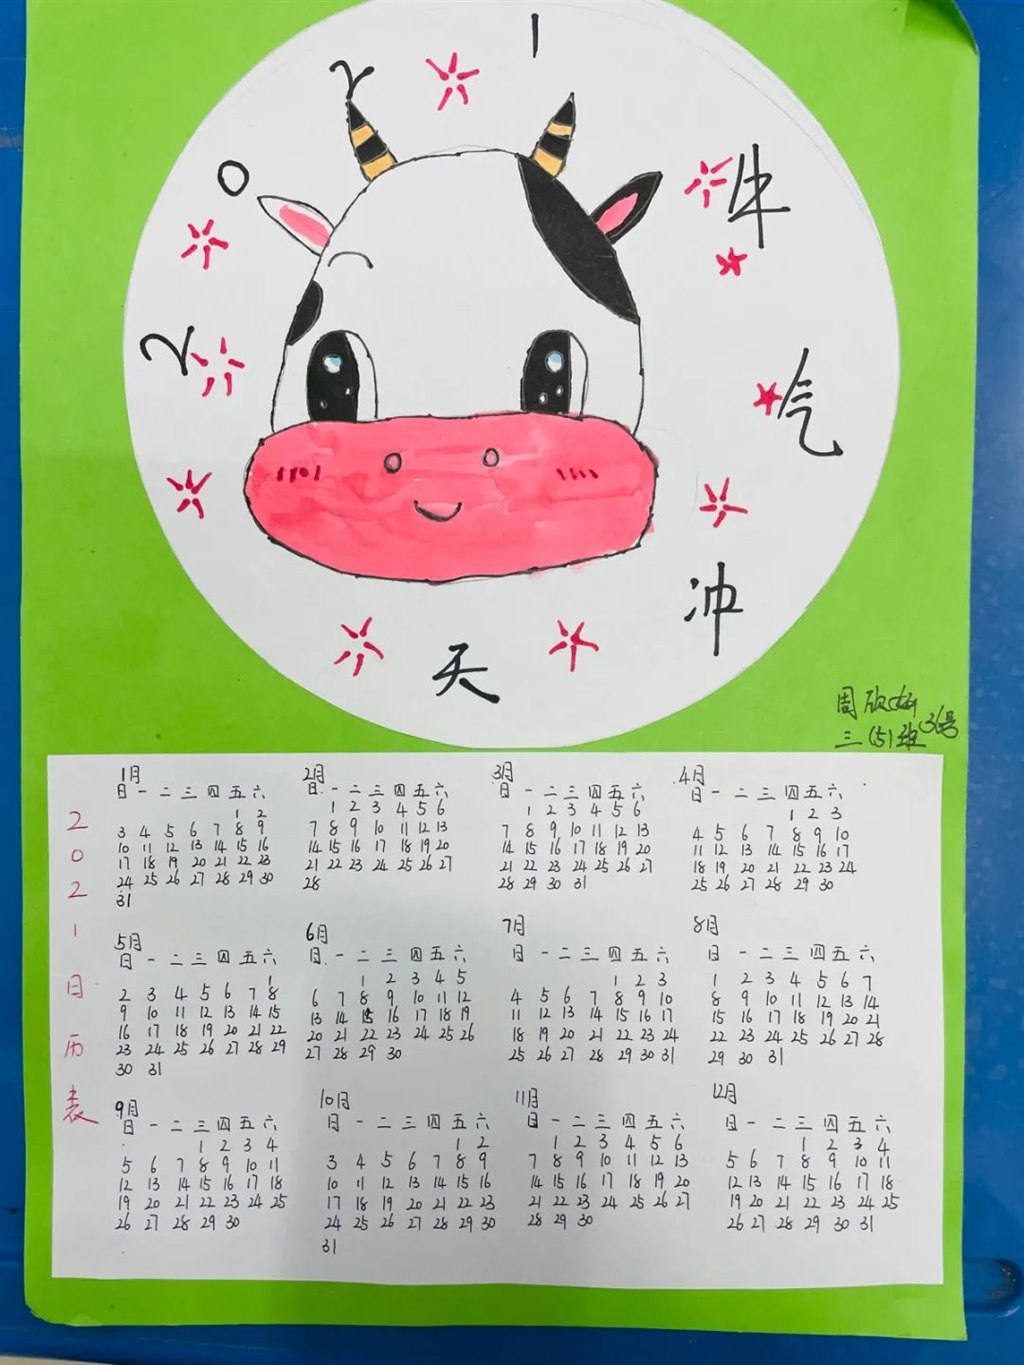 2021
牛气冲天
周欣
三(5)班36号
2021日历表
1月
日 一 二 三 四 五 六
1 2
3 4 5 6 7 8 9
10 11 12 13 14 15 16
17 18 19 20 21 22 23
24 25 26 27 28 29 30
31
2月
日 一 二 三 四 五 六
1 2 3 4 5 6
7 8 9 10 11 12 13
14 15 16 17 18 19 20
21 22 23 24 25 26 27
28
3月
日 一 二 三 四 五 六
1 2 3 4 5 6
7 8 9 10 11 12 13
14 15 16 17 18 19 20
21 22 23 24 25 26 27
28 29 30 31
4月
日 一 二 三 四 五 六
1 2 3
4 5 6 7 8 9 10
11 12 13 14 15 16 17
18 19 20 21 22 23 24
25 26 27 28 29 30
5月
日 一 二 三 四 五 六
1
2 3 4 5 6 7 8
9 10 11 12 13 14 15
16 17 18 19 20 21 22
23 24 25 26 27 28 29
30 31
6月
日 一 二 三 四 五 六
1 2 3 4 5
6 7 8 9 10 11 12
13 14 15 16 17 18 19
20 21 22 23 24 25 26
27 28 29 30
7月
日 一 二 三 四 五 六
1 2 3
4 5 6 7 8 9 10
11 12 13 14 15 16 17
18 19 20 21 22 23 24
25 26 27 28 29 30 31
8月
日 一 二 三 四 五 六
1 2 3 4 5 6 7
8 9 10 11 12 13 14
15 16 17 18 19 20 21
22 23 24 25 26 27 28
29 30 31
9月
日 一 二 三 四 五 六
1 2 3 4
5 6 7 8 9 10 11
12 13 14 15 16 17 18
19 20 21 22 23 24 25
26 27 28 29 30
10月
日 一 二 三 四 五 六
1 2
3 4 5 6 7 8 9
10 11 12 13 14 15 16
17 18 19 20 21 22 23
24 25 26 27 28 29 30
31
11月
日 一 二 三 四 五 六
1 2 3 4 5 6
7 8 9 10 11 12 13
14 15 16 17 18 19 20
21 22 23 24 25 26 27
28 29 30
12月
日 一 二 三 四 五 六
1 2 3 4
5 6 7 8 9 10 11
12 13 14 15 16 17 18
19 20 21 22 23 24 25
26 27 28 29 30 31